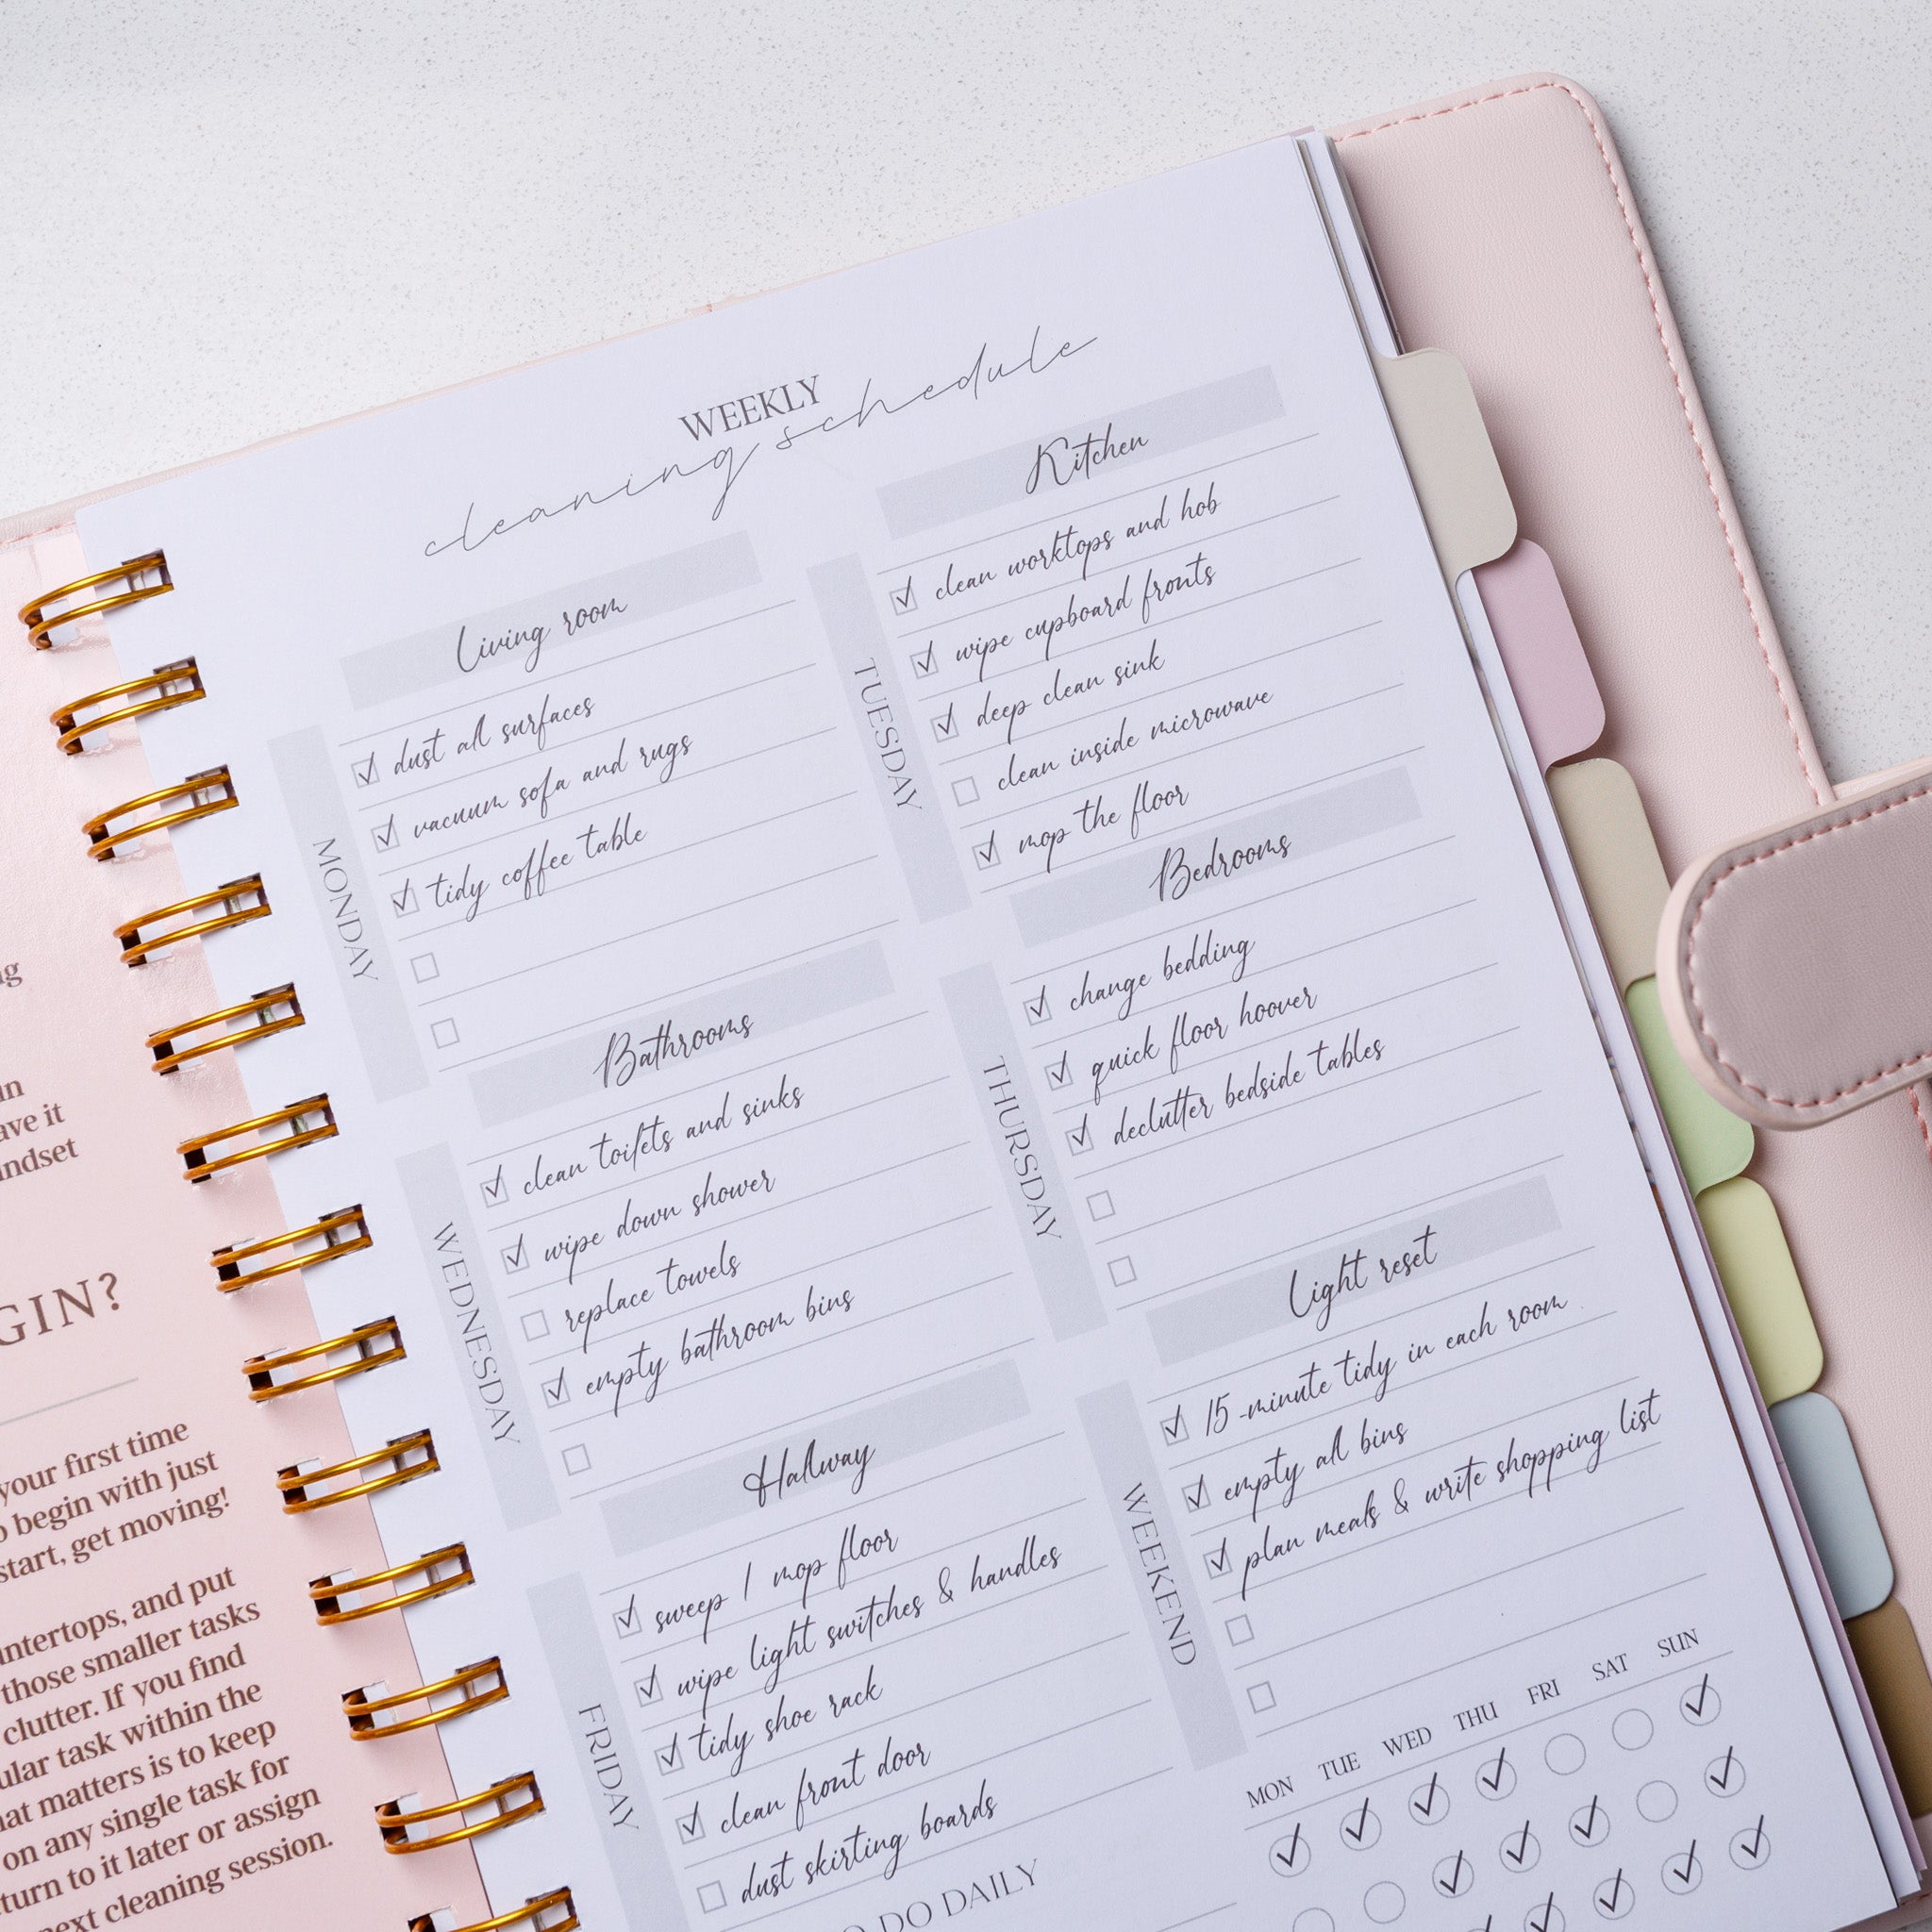 WEEKLY
cleaning schedule
MONDAY
Living room
dust all surfaces
vacuum sofa and rugs
tidy coffee table
TUESDAY
Kitchen
clean worktops and hob
wipe cupboard fronts
deep clean sink
clean inside microwave
mop the floor
WEDNESDAY
Bathrooms
clean toilets and sinks
wipe down shower
replace towels
empty bathroom bins
THURSDAY
Bedrooms
change bedding
quick floor hoover
declutter bedside tables
FRIDAY
Hallway
sweep / mop floor
wipe light switches & handles
tidy shoe rack
clean front door
dust skirting boards
WEEKEND
Light reset
15-minute tidy in each room
empty all bins
plan meals & write shopping list
DO DAILY
MON TUE WED THU FRI SAT SUN
your first time
begin with just
start, get moving!
and put
those smaller tasks
clutter. If you find
task within the
matters is to keep
on any single task for
to it later or assign
next cleaning session.